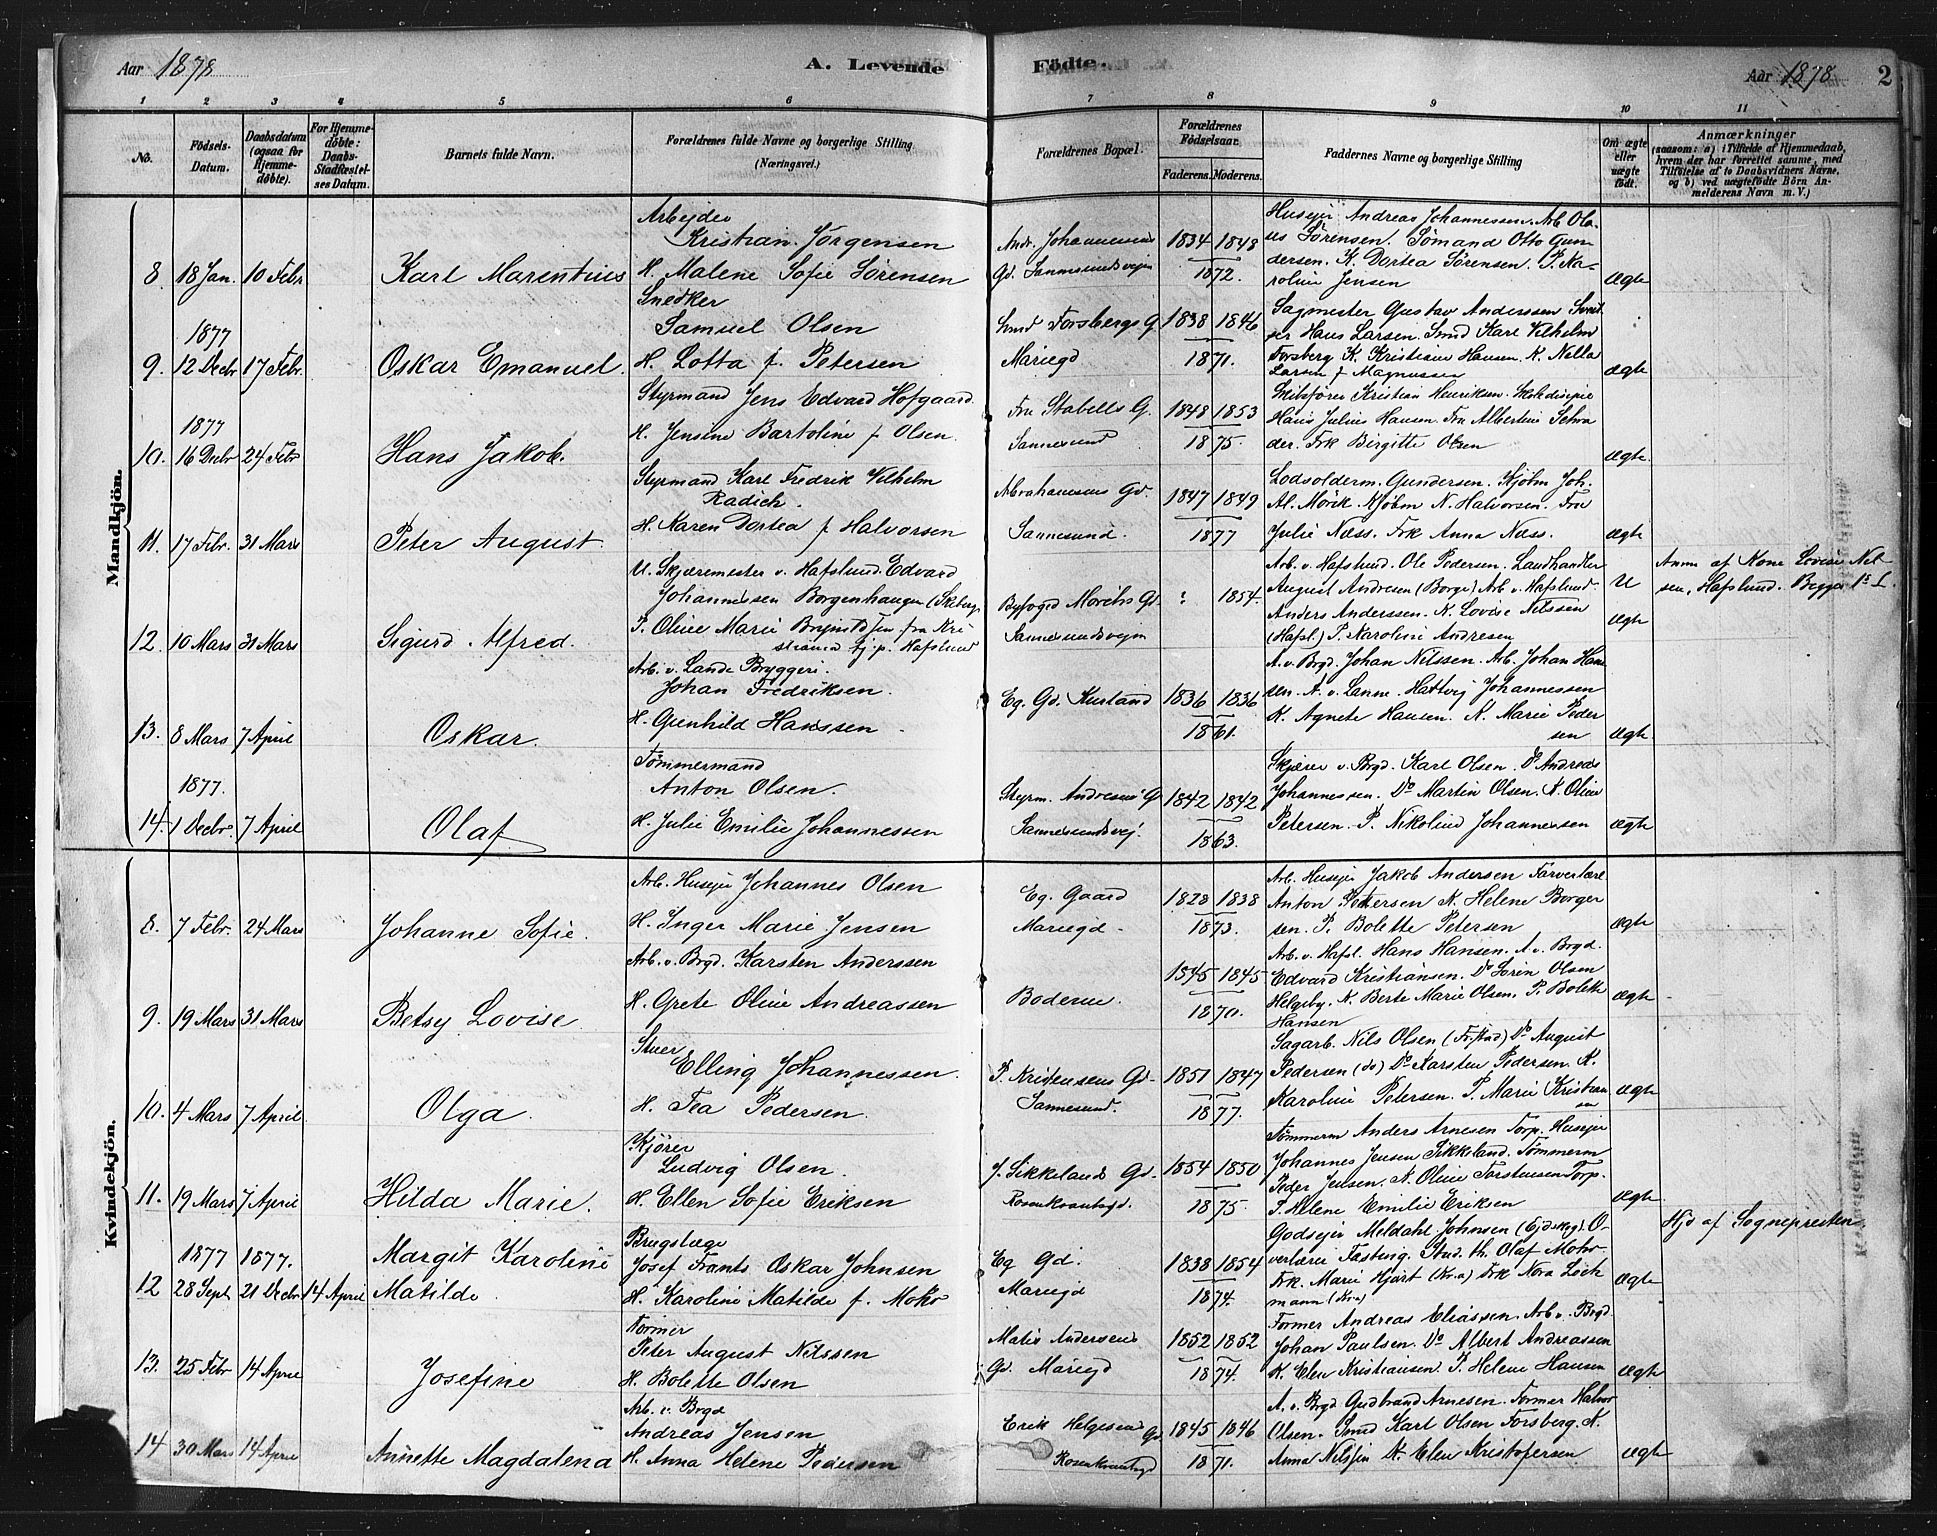 Aar 1878
A. Levende Födte.
Aar 1878
2
1 2 3 4 5 6 7 8 9 10 11
No.
Födsels-Datum.
Daabsdatum (ogsaa for Hjemme-döbte).
For Hjemme-döbte: Daabs-Stadfæstel-ses Datum.
Barnets fulde Navn.
Forældrenes fulde Navne og borgerlige Stilling (Næringsvei.)
Forældrenes Bopæl.
Forældrenes Födselsaar.
Faderens. Moderens.
Faddernes Navne og borgerlige Stilling.
Om ægte eller uægte født.
Anmærkninger
(saasom: a) i Tilfælde af Hjemmedaab,
hvem der har forrettet samme, med
Tilföielse af to Daabsvidners Navne,
og b) ved uægtefödte Börn An-
melderens Navn m. V.)
Mandkjön.
8. 18 Jan. 10 Febr
Karl Marentius
Arbejder
Kristian Jørgensen
H. Malene Sofie Sørensen
Andr. Johannesens
Gd. Sannesundsvejen
1834 1848
1872.
Husejer Andreas Johannessen. Arb. Ola-
us Sørensen. Sømand Otto Gun-
dersen. K. Dortea Sørensen. P. Ka-
roline Jensen
ægte
1877
9. 12 Decbr 17 Febr.
Oskar Emanuel.
Snedker
Samuel Olsen
H. Lotta f. Petersen
Smed Forsbergs G.
Mariegd
1838 1846
1871.
Sagmester Gustav Anderssen
Hans Larsen. Smed Karl Vilhelm
Forsberg K. Kristiane Hansen. K. Nella
Larsen f Magnussen
ægte
1877
10. 16 Decbr 24 Febr
Hans Jakob.
Styrmand Jens Edvard Hofgaard.
H. Jensine Bartoline f Olsen.
Fru Stabells G.
Sannesund
1848 1853
1875.
Skibsfører Kristian Henriksen.
Hans Julius Hansen. Fru Albertine Schra
der. Frk Birgitte Olsen
ægte.
11. 17 Febr. 31 Mars
Peter August.
Styrmand Karl Fredrik Vilhelm
Radich.
H. Karen Dortea f Halvorsen
Abrahamsens Gd.
Sannesund.
1847 1849
1877
Lodsolderm. Gundersen. Kjøbm Joh.
Al. Mörik. Kjöbm N. Halvorsen. Fru
Julie Næss. Frk Anna Næss.
ægte
12. 10 Mars 31 Mars
Sigurd Alfred.
U. Skjæremester v. Hafslund. Edvard
Johannessen Borgenhaugen (Skeberg
P. Oline Marie fra Kri
stiania tj. p. Hafslund
Byfoged Morchs Gd.
Sannesundsvejen
? 1854.
Arb. v. Hafslund. Ole Pedersen. Landhandler
August Andresen (Borge) Arb v. Hafslund.
Anders Anderssen. K. Lovise Nilssen
(Hafsl.) P. Karoline Andresen
U
ægte
Anm af Kone Lovise Nil-
sen, Hafslund. Begges 1s L.
13. 8 Mars 7 April
Oskar.
Arb. v. Lande Bryggeri
Johan Fredriksen.
H. Gunhild Hanssen.
Eg. Gd. Kurland
1836 1836
1861.
A. v. Brgd. Johan Nilssen. Arb. Johan Han
sen. A. v. Lanne. Hartvig Johannessen
K. Agnete Hansen. K. Marie Peder
sen
ægte.
1877.
14. 1 Decbr. 7 April
Olaf
Tømmermand
Anton Olsen.
H. Julie Emilie Johannessen
Styrm. Andresens G
Sannesundsvej.
1842 1842
1863.
Skjærer v. Brgd. Karl Olsen. Do Andreas
Johannessen. Do Martin Olsen. K. Oline
Petersen. P. Nikoline Johannessen
ægte
Kvindekjön.
8. 7 Febr. 24 Mars
Johanne Sofie.
Arb. Husejer Johannes Olsen
H. Inger Marie Jensen
Eg. Gaard
Mariegd.
1828 1838
1873.
Arb. Husejer Jakob Andersen
Anton Petersen K. Helene Borger
sen. P. Bolette Petersen
ægte
9. 19 Mars 31 Mars
Betsy Lovise.
Arb. v. Brgd. Karsten Anderssen
H. Grete Oline Andreassen
Boderne.
1845 1845
1870.
Arb. v. Hafsl. Hans Hansen. A. v. Brgd.
Edvard Kristiansen. Do Søren Olsen
Helgeby. K. Berte Marie Olsen. P. Bolette
Hansen
ægte
10. 4 Mars 7 April
Olga.
Stuer
Elling Johannessen.
H. Tea Pedersen.
P. Kristensens Gd.
Sannesund.
1851 1847
1877.
Sagarb. Nils Olsen (Fr.stad) Do August
Pedersen (do) Do Karsten Pedersen. K.
Karoline Petersen. P. Marie Kristian
sen
ægte
11. 19 Mars 7 April
Hilda Marie.
Kjører
Ludvig Olsen.
H. Ellen Sofie Eriksen
J. Sikkelands Gd.
Rosenkrantzgd.
1854 1850
1875.
Tömmerm Anders Arnesen Torp. Husejer
Johannes Jensen Sikkeland. Tömmerm
Peder Jensen. K. Oline Torstensen Torp.
P. Helene Emilie Eriksen
ægte
1877 1877.
12 28 Sept 21 Decbr 14 April
Margit Karoline
Matilde.
Brugslæge
Josef Frants Oskar Johnsen
H. Karoline Matilde f. Mohr
Eg Gd.
Mariegd
1838 1854
1874.
Godsejer Meldahl Johnsen O-
verlærer Tastvig. Stud. th. Olaf Mohr.
Frk. Marie Hjort (Kr.a) Frk Nora Loch
mann (Kr.a)
ægte
Hjd af Sognepresten
13. 25 Febr 14 April
Josefine
Former
Peter August Nilssen
H. Bolette Olsen
Matis Andersens
Gd. Mariegd
1852 1852
1874.
Former Andreas Eliassen. Arb v. Brgd.
Johan Paulsen. Do Albert Andreassen
K. Elen Kristiansen. P. Helene Hansen
ægte
14 30 Mars 14 April
Annette Magdalena
Arb. v. Brgd
Andreas Jensen
H. Anna Helene Pedersen
Erik Helgesens Gd
Rosenkrantzgd
1845 1846
1871.
A. v. Brgd Gudbrand Arnesen. Former Halvor
Olsen. Smed Karl Olsen Forsberg. K.
Anna Nilssen K. Elen Kristofersen
ægte